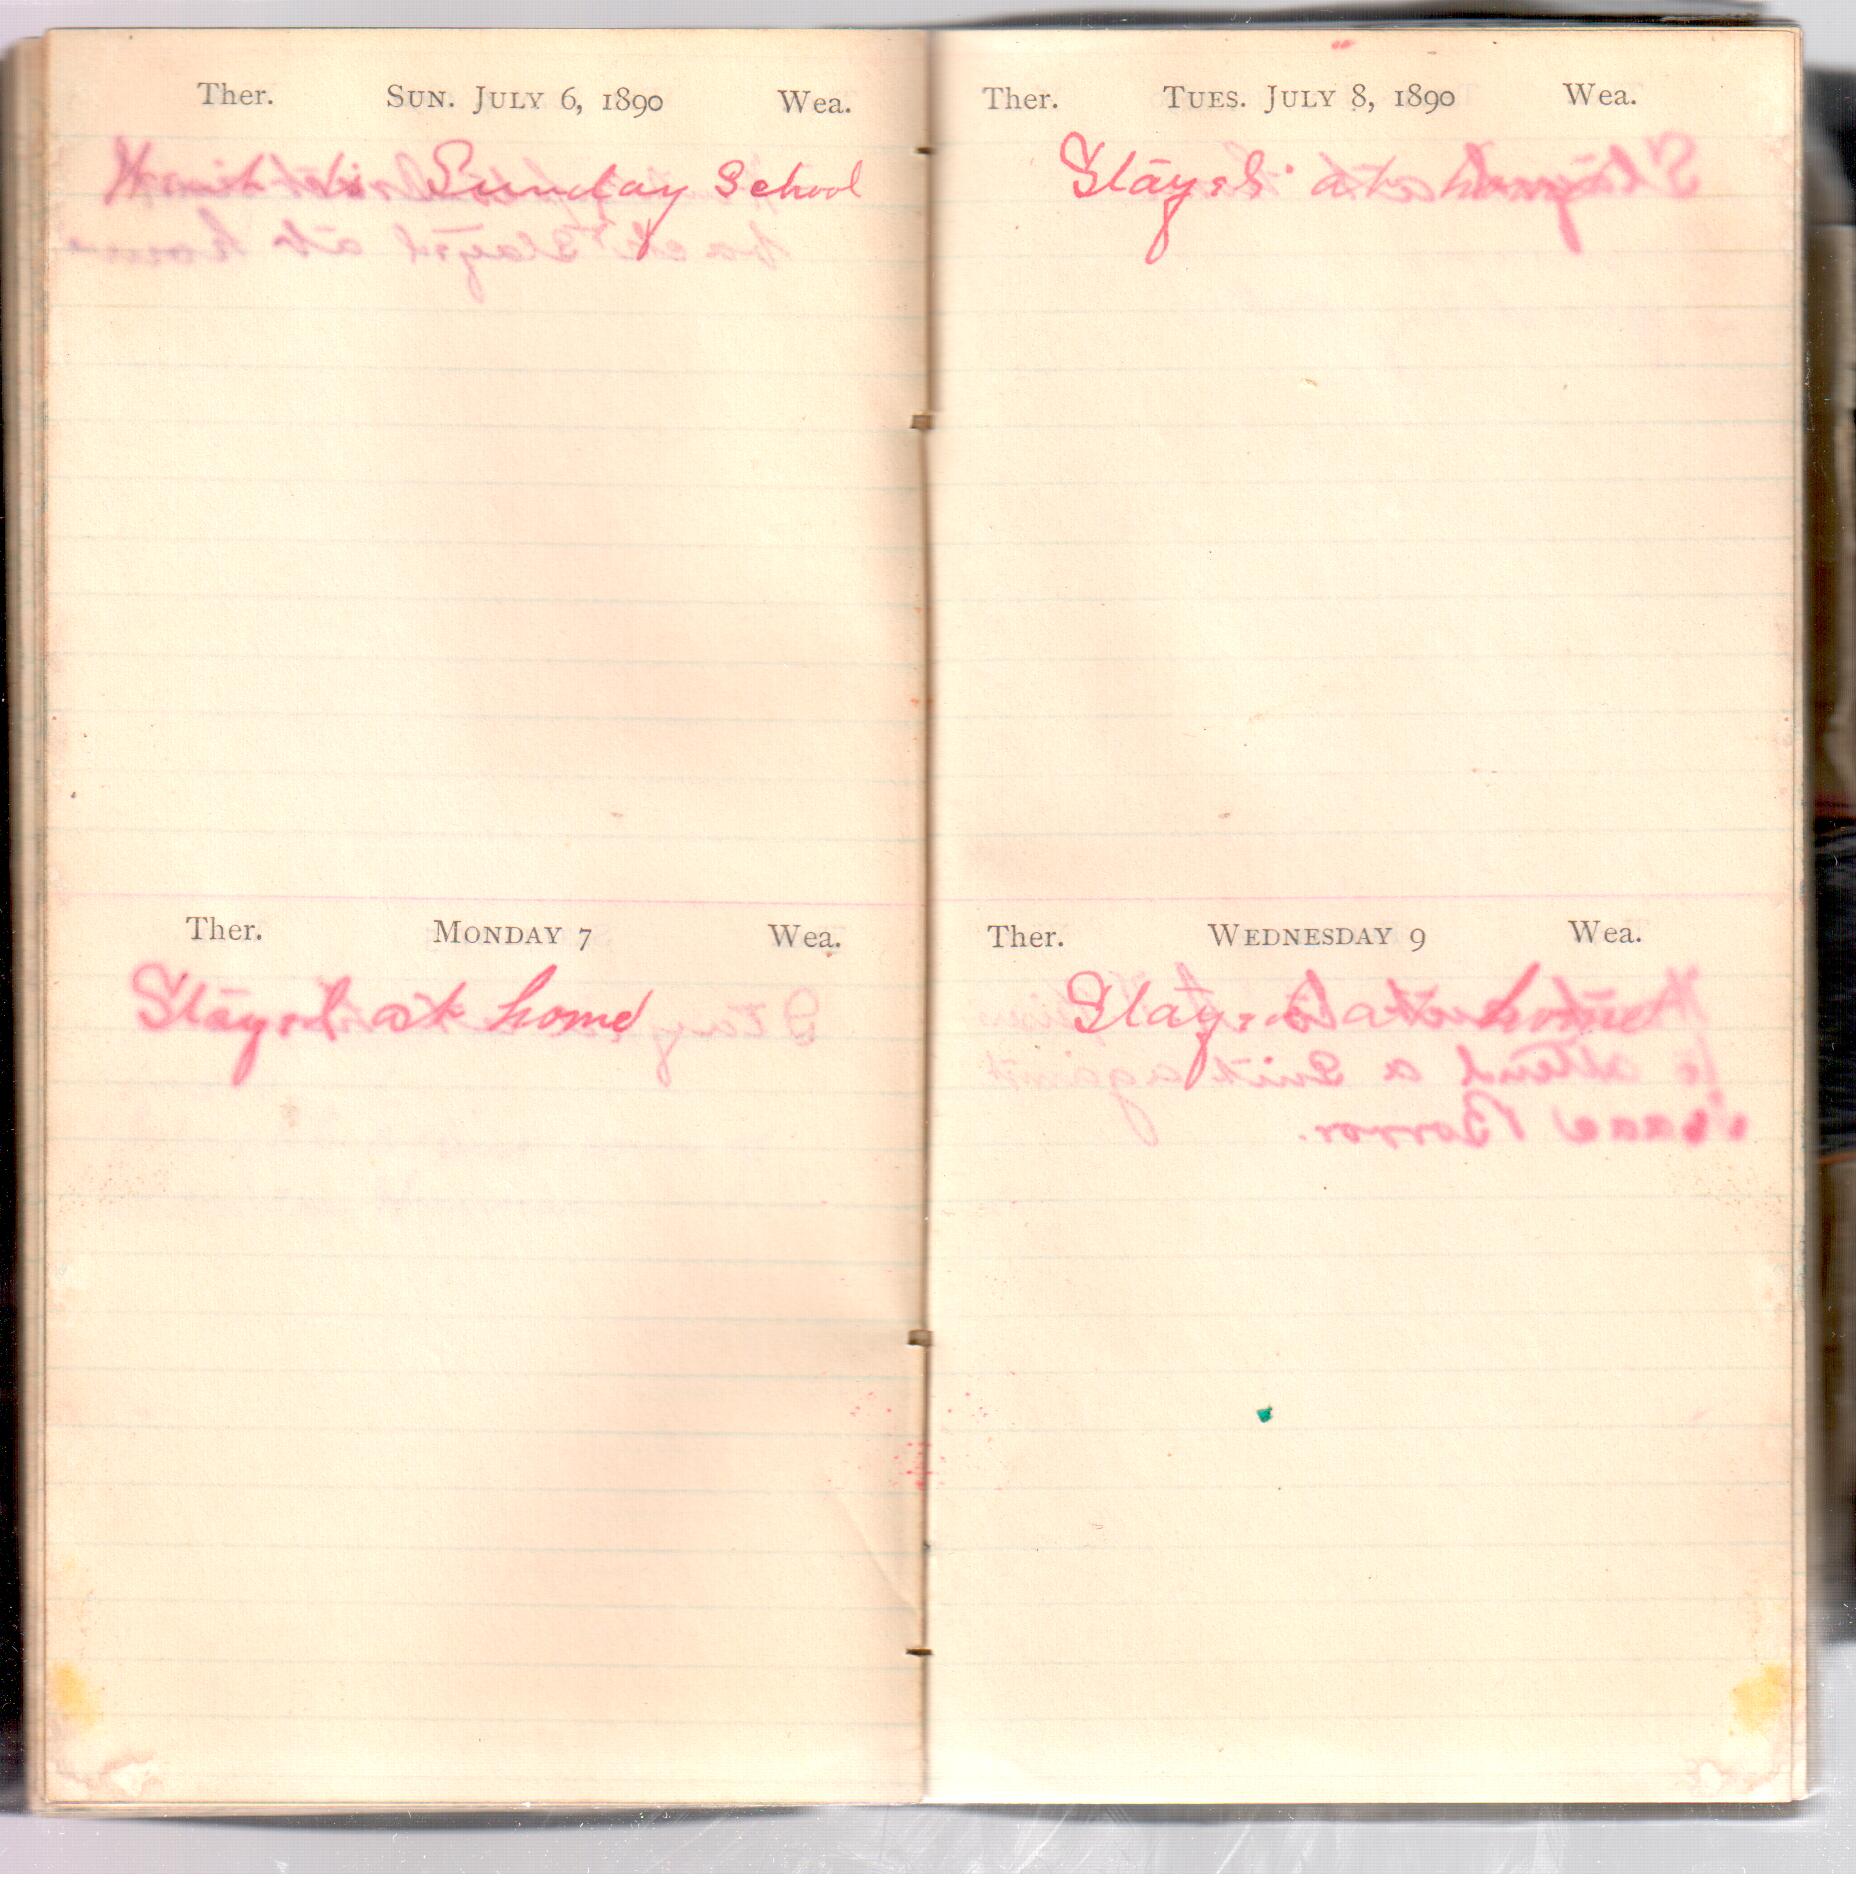 Ther. SUN. JULY 6, 1890 Wea.
Went to Sunday School
Ther. MONDAY 7 Wea.
Stayed at home
Ther. TUES. JULY 8, 1890 Wea.
Stayed at home
Ther. WEDNESDAY 9 Wea.
Stayed at home